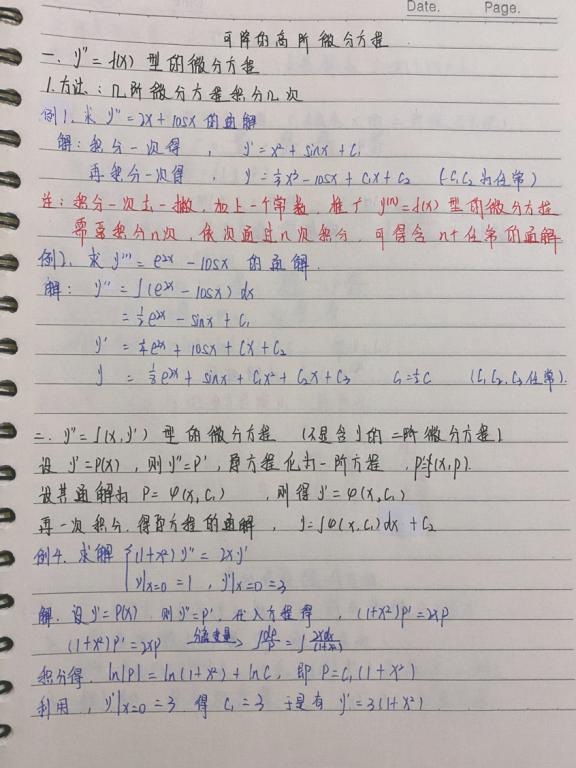 Date. Page.
可降的高阶微分方程
一、y″=f(x) 型的微分方程
1.方法:n阶微分方程积分n次
例1.求 y″=2x+cosx 的通解
解:积分一次得,y′=x²+sinx+C₁
再积分一次得,y=⅓x³-cosx+C₁x+C₂ (C₁C₂为任常)
注:积分一次去一撇,加上一个常数,推广 y⁽ⁿ⁾=f(x) 型的微分方程
需要积分n次,依次通过n次积分,可得含n个任常的通解
例2.求 y‴=e²ˣ-cosx 的通解.
解:y″=∫(e²ˣ-cosx)dx
=½e²ˣ-sinx+C₁
y′=¼e²ˣ+cosx+Cx+C₂
y =⅛e²ˣ+sinx+C₁x²+C₂x+C₃ C₁=½C (C₁,C₂,C₃任常).
二、y″=f(x,y′) 型的微分方程 (不显含y的二阶微分方程)
设 y′=P(x),则y″=P′,原方程化为一阶方程,p′=f(x,p).
设其通解为 P=φ(x,C₁) ,则得y′=φ(x,C₁)
再一次积分,得原方程的通解,y=∫φ(x,C₁)dx+C₂
例4.求解 {(1+x²)y″=2xy′
y|x=0=1,y′|x=0=3
解.设y′=P(x) 则y″=P′,代入方程得,(1+x²)P′=2xp
(1+x²)P′=2xp 分离变量 ∫dp/p=∫2xdx/(1+x²)
积分得,ln|P|=ln(1+x²)+lnC,即 P=C₁(1+x²)
利用,y′|x=0=3 得 C₁=3 于是有 y′=3(1+x²)